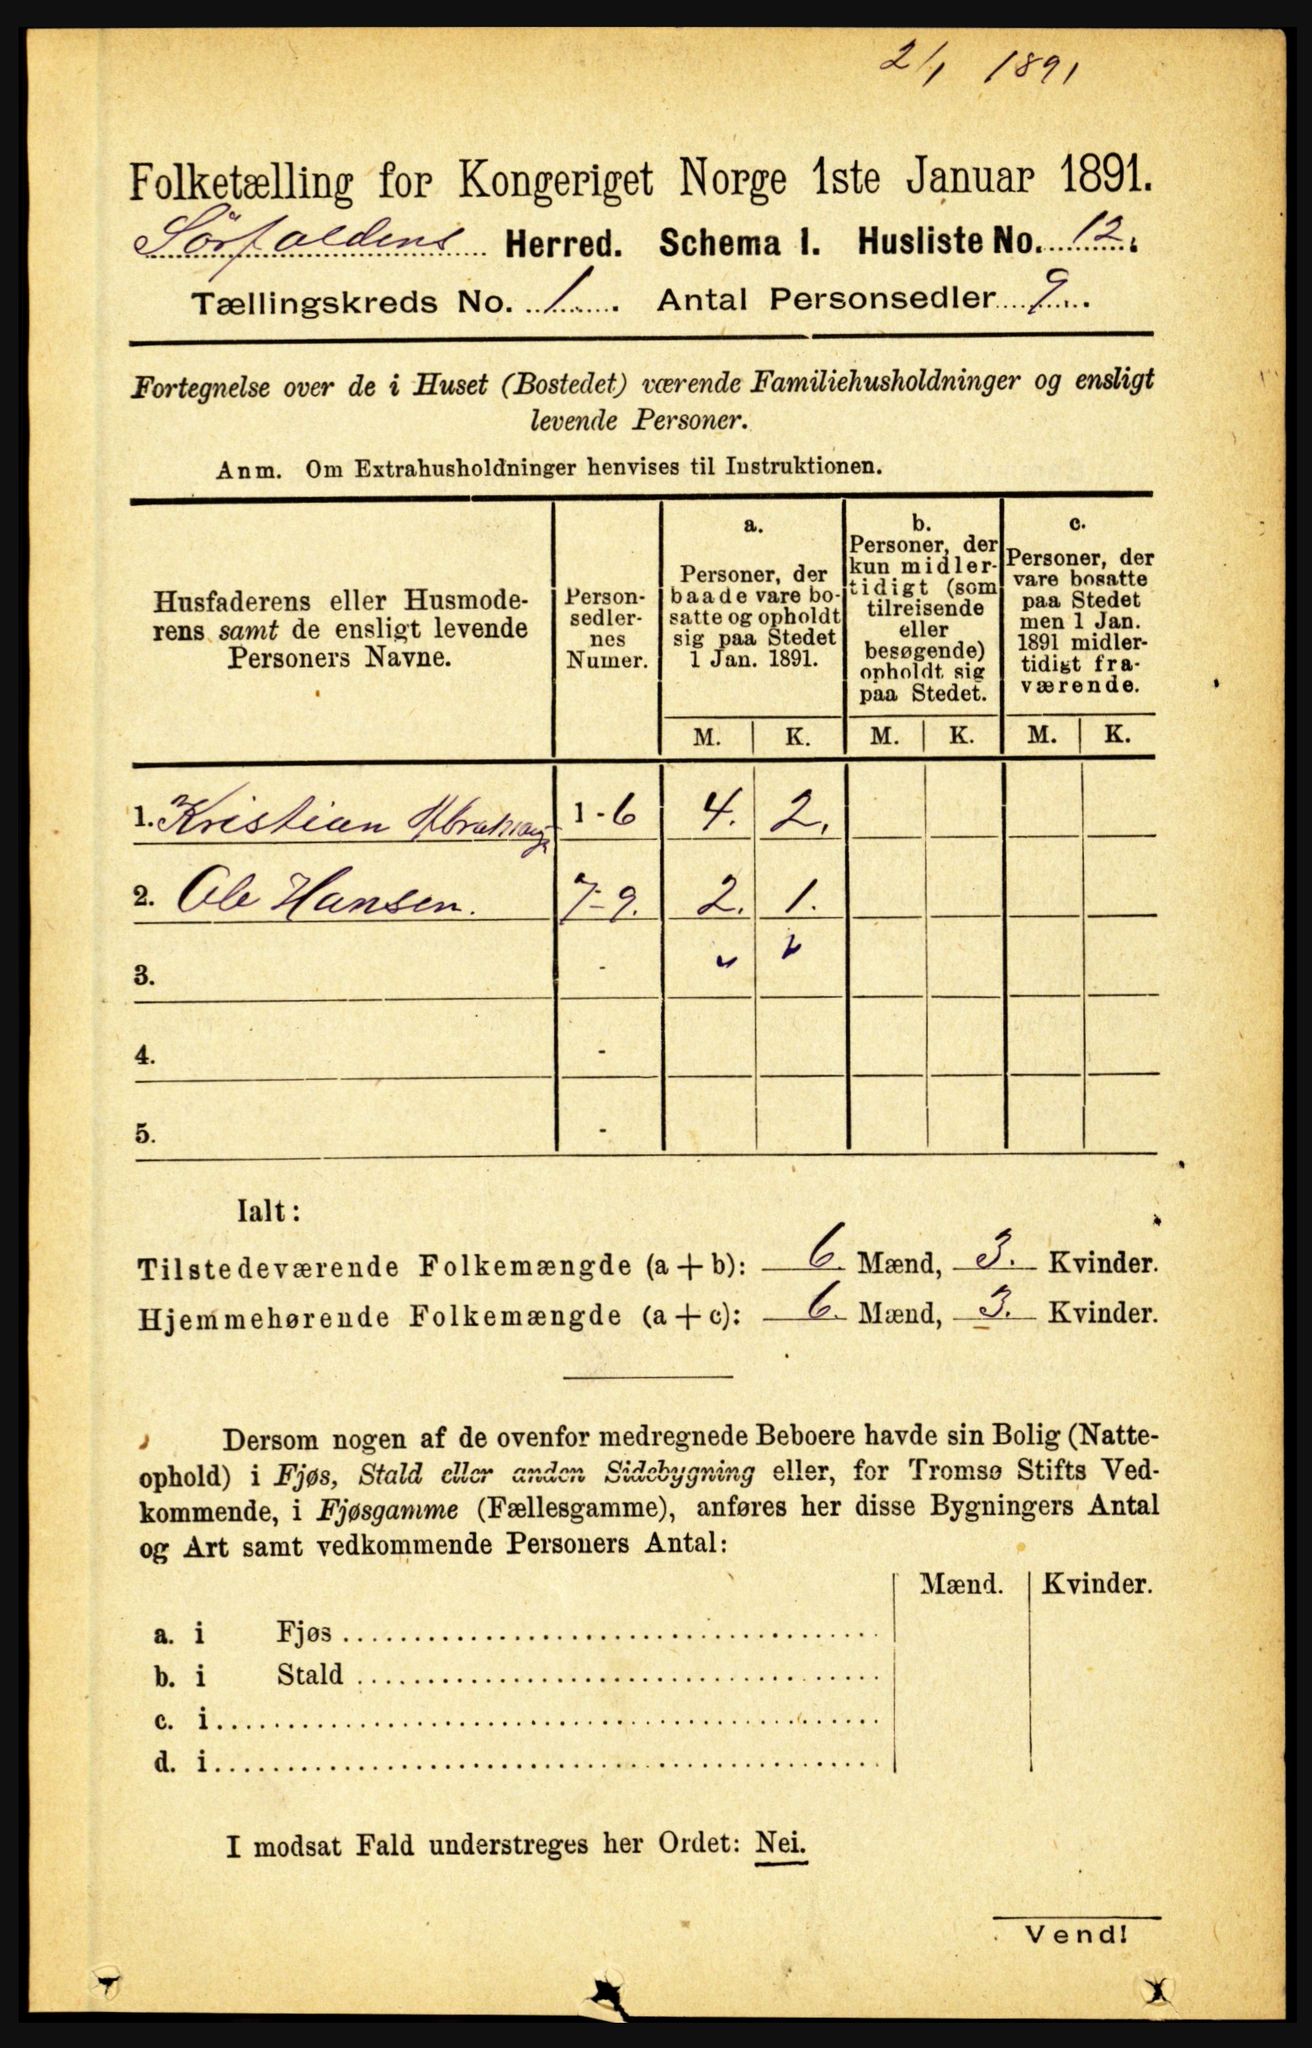 2/1 1891
Folketælling for Kongeriget Norge 1ste Januar 1891.
Sörfoldens Herred. Schema 1. Husliste No. 12.
Tællingskreds No. 1. Antal Personsedler 9.
Fortegnelse over de i Huset (Bostedet) værende Familiehusholdninger og ensligt
levende Personer.
Anm. Om Extrahusholdninger henvises til Instruktionen.
Husfaderens eller Husmode-
rens samt de ensligt levende
Personers Navne.
Person-
sedler-
nes
Numer.
a.
Personer, der
baade vare bo-
satte og opholdt
sig paa Stedet
1 Jan. 1891.
b.
Personer, der
kun midler-
tidigt (som
tilreisende
eller
besøgende)
opholdt sig
paa Stedet.
c.
Personer, der
vare bosatte
paa Stedet
men 1 Jan.
1891 midler-
tidigt fra-
værende.
M. K. M. K. M. K.
1. Kristian 1-6 4. 2.
2. Ole Hansen. 7-9. 2. 1.
3. -
4. -
5. -
Ialt:
Tilstedeværende Folkemængde (a + b): 6. Mænd, 3. Kvinder.
Hjemmehørende Folkemængde (a + c): 6. Mænd, 3. Kvinder.
Dersom nogen af de ovenfor medregnede Beboere havde sin Bolig (Natte-
ophold) i Fjøs, Stald eller anden Sidebygning eller, for Tromsø Stifts Ved-
kommende, i Fjøsgamme (Fællesgamme), anføres her disse Bygningers Antal
og Art samt vedkommende Personers Antal:
Mænd. Kvinder.
a. i Fjøs
b. i Stald
c. i
d. i
I modsat Fald understreges her Ordet: Nei.
Vend!